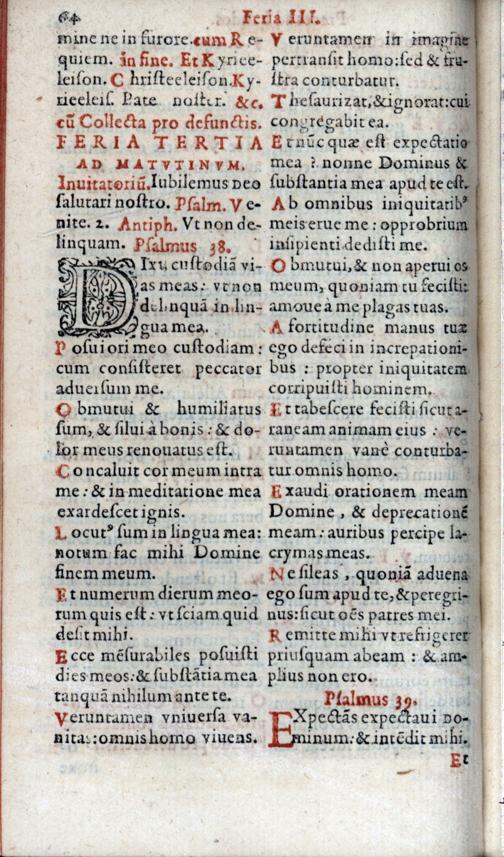 64 Feria III.
mine ne in furore. cum Re-
quiem. in fine. Et Kyriee-
leison. Christeeleison. Ky-
rieeleis. Pate noster. &c.
cũ Collecta pro defunctis.
FERIA TERTIA
AD MATVTINVM.
Inuitatoriũ. Iubilemus Deo
salutari nostro. Psalm. Ve-
nite. 2. Antiph. Vt non de-
linquam. Psalmus 38.
DIxi, custodiã vi-
as meas: vt non
delinquã in lin-
gua mea.
Posui ori meo custodiam:
cum consisteret peccator
aduersum me.
Obmutui & humiliatus
sum, & silui à bonis: & do-
lor meus renouatus est.
Concaluit cor meum intra
me: & in meditatione mea
exardescet ignis.
Locutꝰ sum in lingua mea:
notum fac mihi Domine
finem meum.
Et numerum dierum meo-
rum quis est: vt sciam quid
desit mihi.
Ecce mẽsurabiles posuisti
dies meos: & substãtia mea
tanquã nihilum ante te.
Veruntamen vniuersa va-
nitas: omnis homo viuens.
Veruntamen in imagine
pertransit homo: sed & fru-
stra conturbatur.
Thesaurizat, & ignorat: cui
congregabit ea.
Et nũc quæ est expectatio
mea? nonne Dominus &
substantia mea apud te est.
Ab omnibus iniquitatibꝰ
meis erue me: opprobrium
insipienti dedisti me.
Obmutui, & non aperui os
meum, quoniam tu fecisti:
amoue à me plagas tuas.
A fortitudine manus tuæ
ego defeci in increpationi-
bus: propter iniquitatem
corripuisti hominem.
Et tabescere fecisti sicut a-
raneam animam eius: ve-
runtamen vanè conturba-
tur omnis homo.
Exaudi orationem meam
Domine, & deprecationẽ
meam: auribus percipe la-
crymas meas.
Ne sileas, quoniã aduena
ego sum apud te, & peregri-
nus: sicut oẽs patres mei.
Remitte mihi vt refrigerer
priusquam abeam: & am-
plius non ero.
Psalmus 39.
EXpectãs expectaui Do-
minum: & intẽdit mihi.
Et